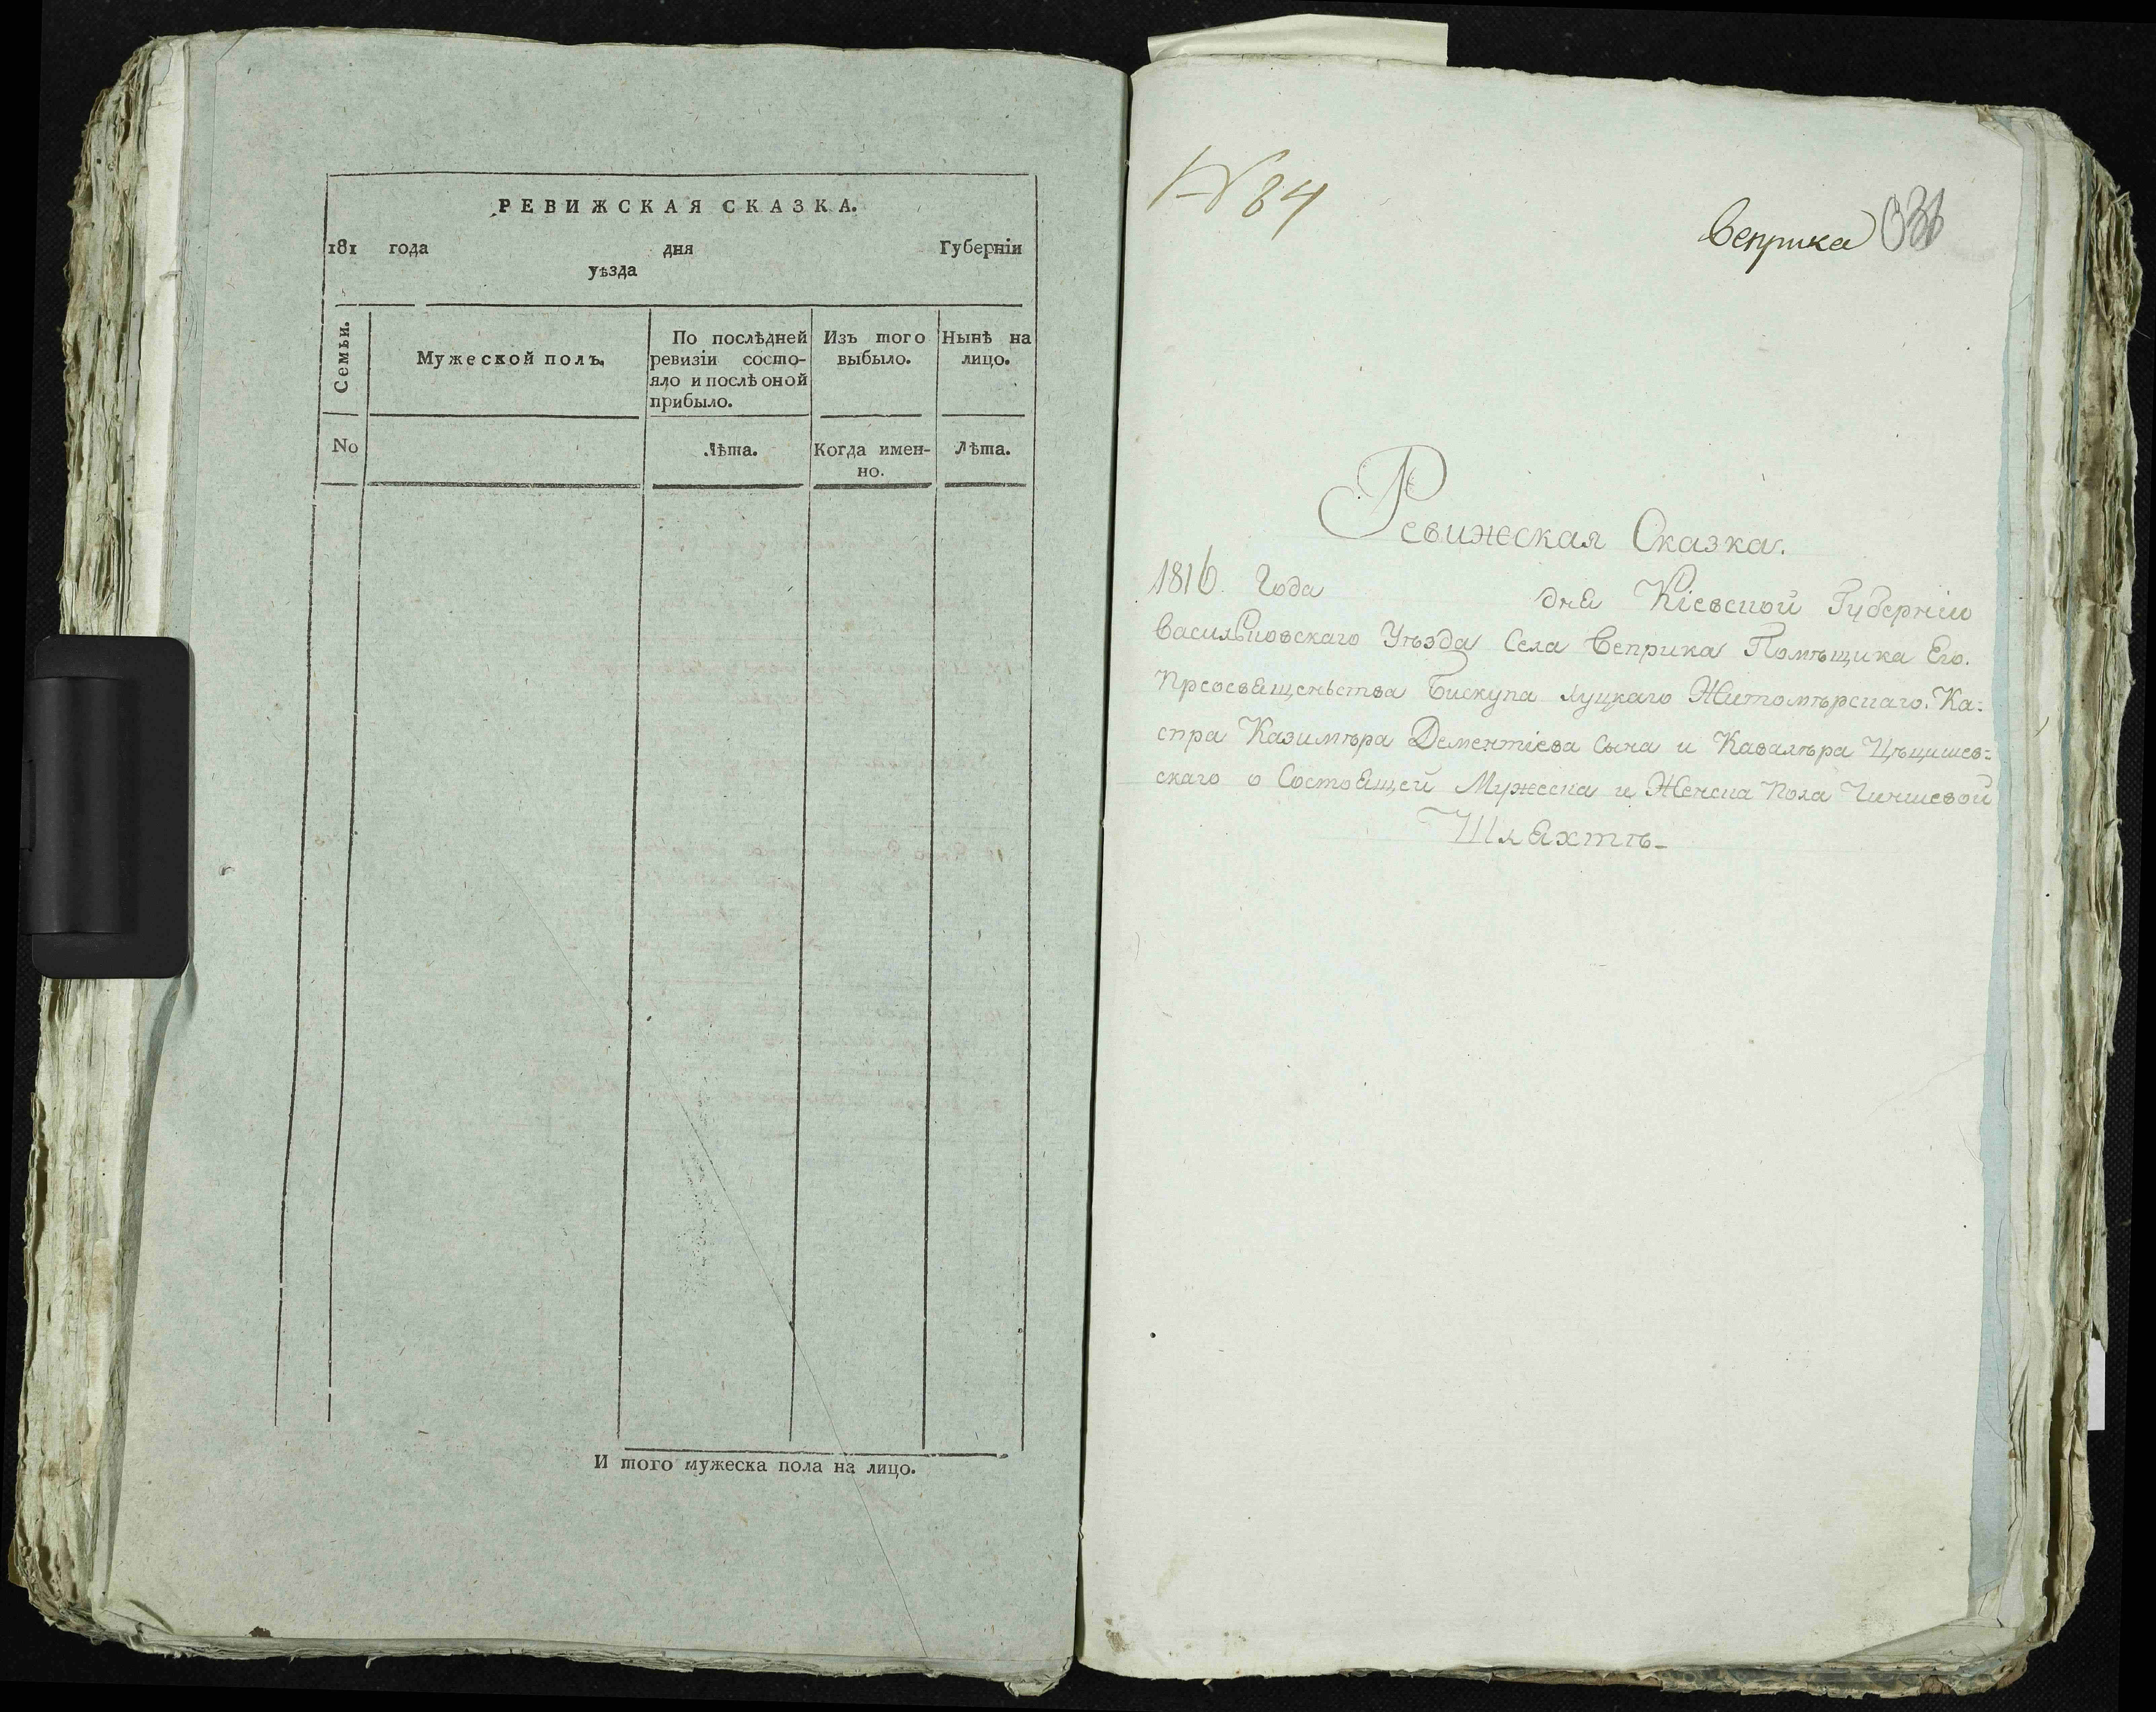 РЕВИЖСКАЯ СКАЗКА.
181 года дня Губерніи
уѣзда
Семьи.
Мужеской полъ.
По послѣдней ревизіи состо-
яло и послѣ оной
прибыло.
Изъ того
выбыло.
Нынѣ на
лицо.
No
Лѣта.
Когда имен-
но.
Лѣта.
И того мужеска пола на лицо.
№ 84
Веприка
Ревижская Сказка.
1816 Года дня Кіевской Губерніи
Васильковскаго Уѣзда Села Веприка Помѣщика Его.
Преосвященьства Бискупа Луцкаго Житомѣрскаго. Ка:
спра Казимѣра Дементіева Сына и Кавалѣра Цѣцишев:
скаго о Состоящей Мужеска и Женска Пола Чиншевой
Шляхтѣ-